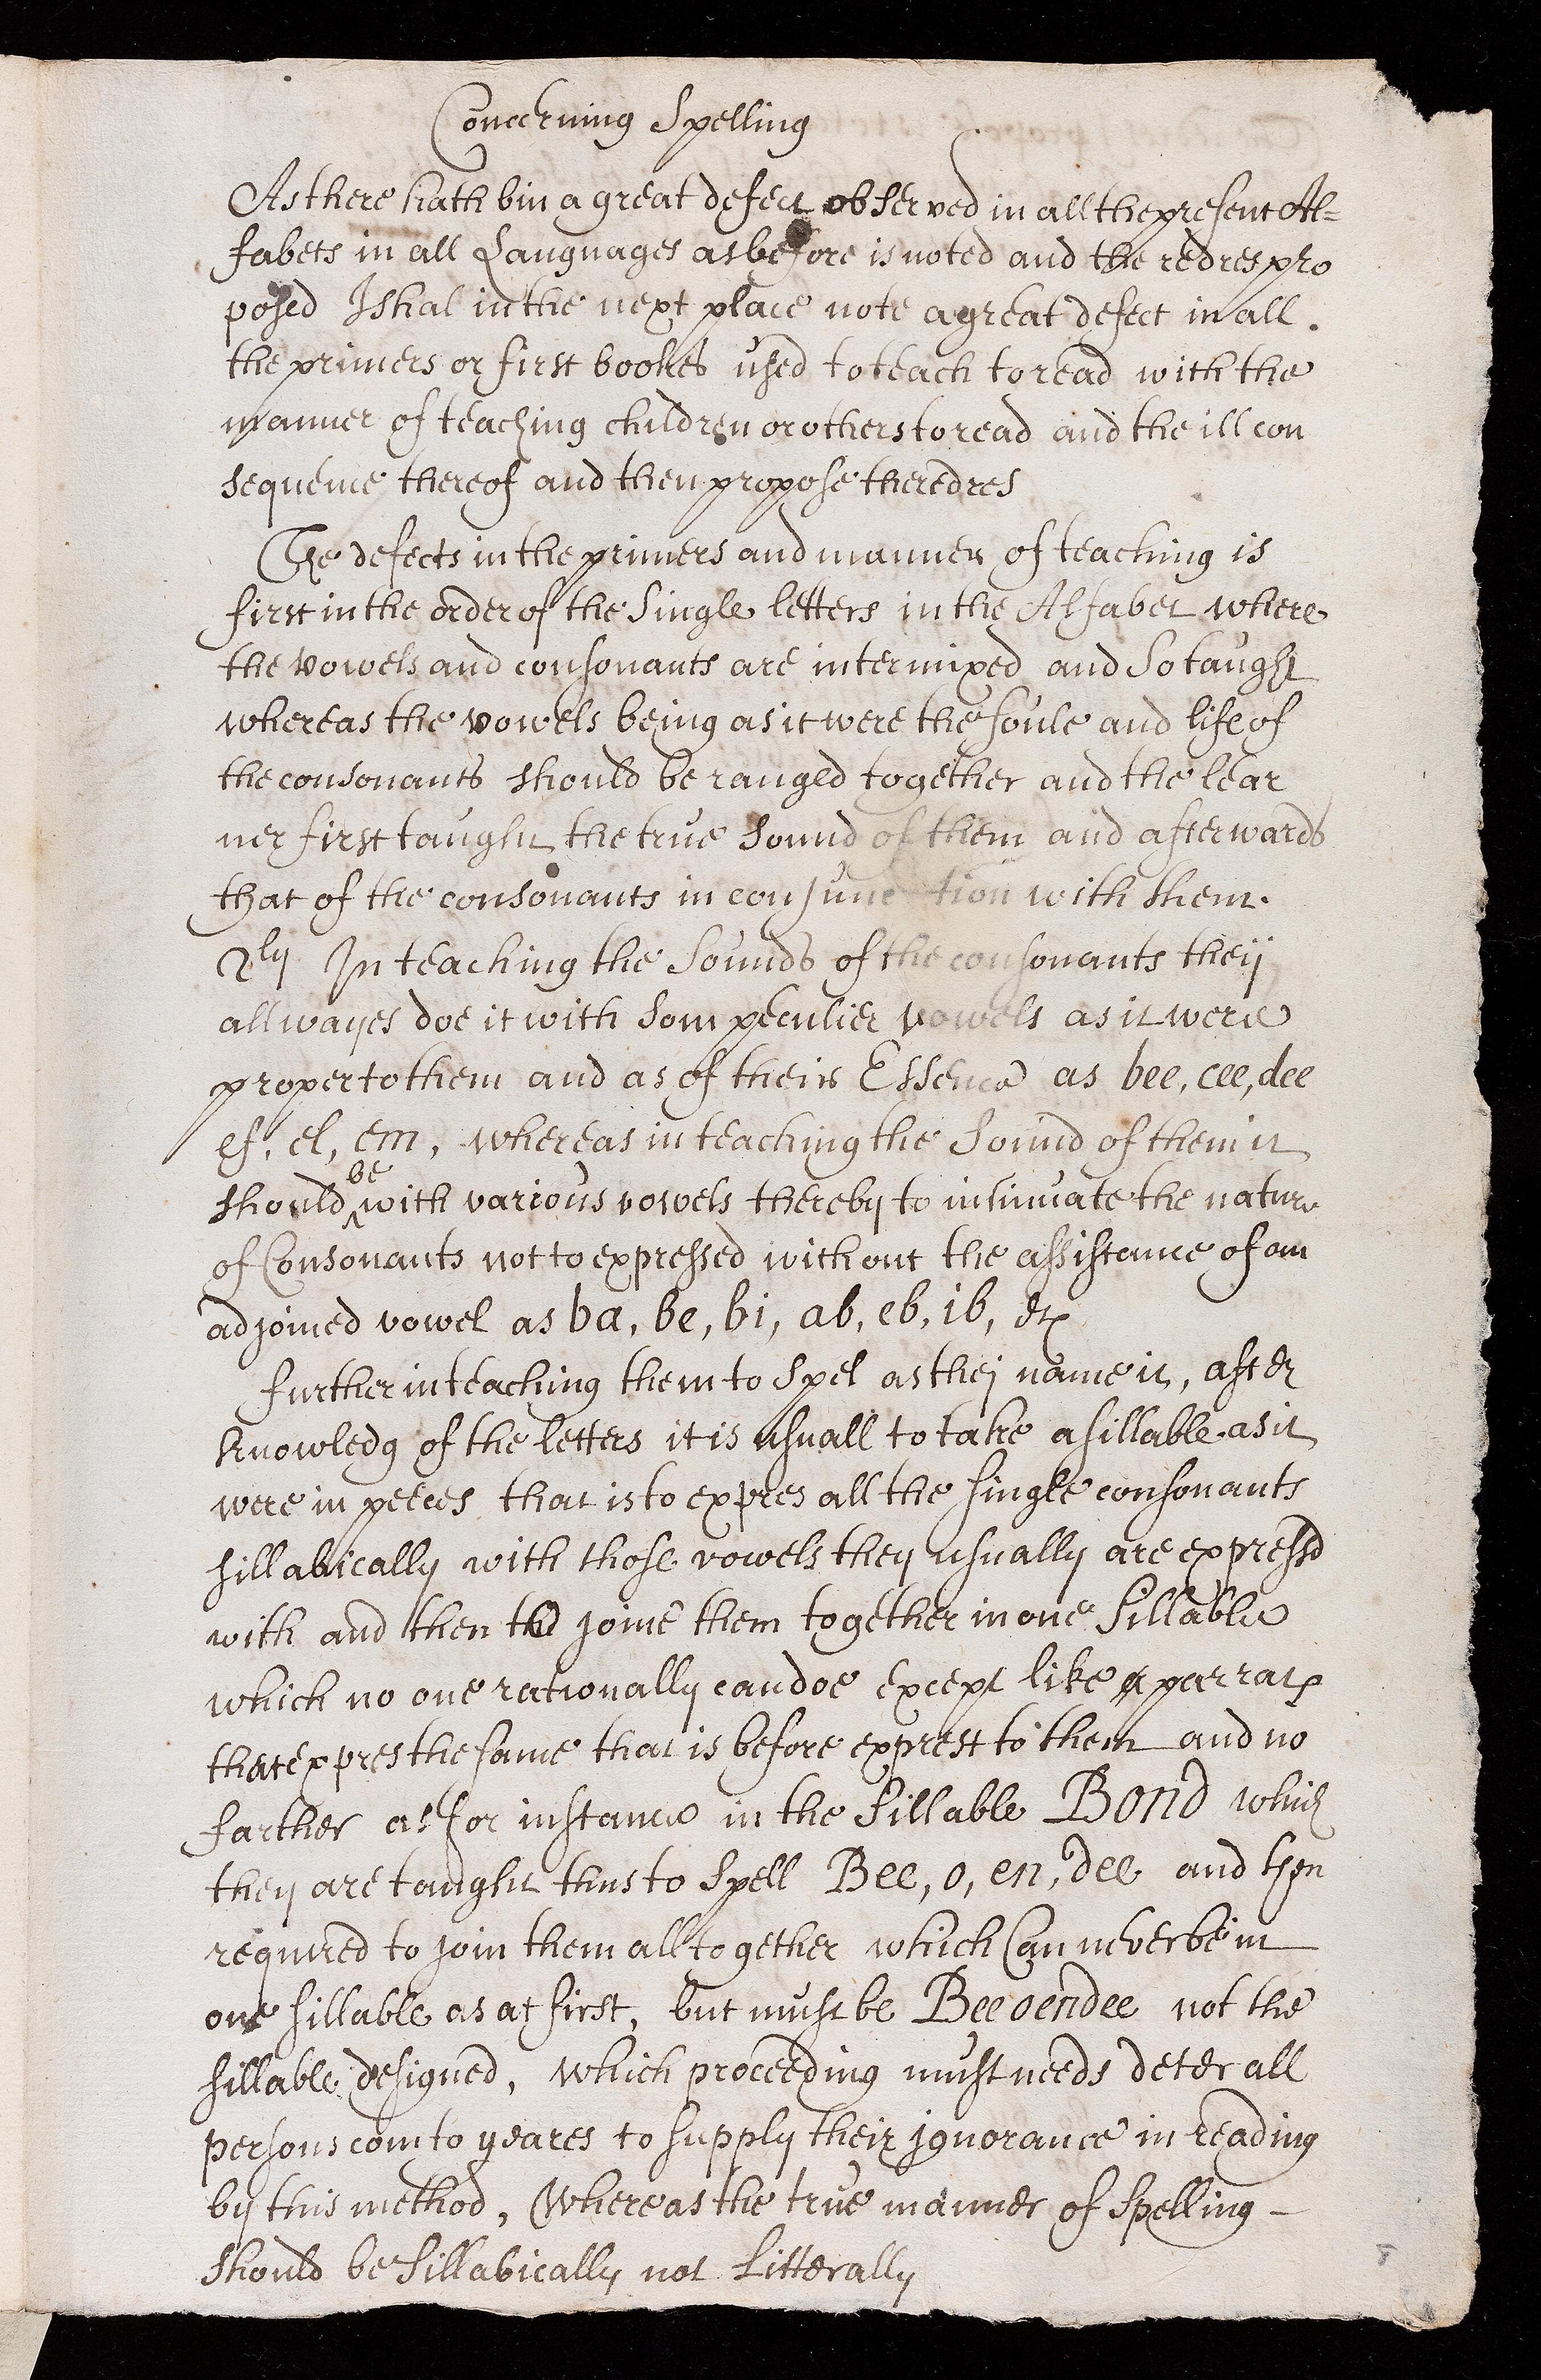 Concerning Spelling
As there hath bin a great defect observed in all the present Al=
fabets in all Languages as before is noted and the redres pro
posed I shal in the next place note a great defect in all.
the primers or first bookes used to teach to read with the
manner of teaching children or others to read and the ill con
sequence thereof and then propose the redres
The defects in the primers and manner of teaching is
first in the order of the Single letters in the Alfabet where
the vowels and consonants are intermixed and So taught
whereas the vowels being as it were the soule and life of
the consonants should be ranged together and the lear
ner first taught the true sound of them and afterwards
that of the consonants in conjunction with them.
2ly In teaching the Sounds of the consonants theÿ
allwayes doe it with som peculier vowels as it were
proper to them and as of their Essence as bee, cee, dee
ef, el, em, whereas in teaching the Sound of them it
should be with various vowels thereby to insinuate the nature
of Consonants not to expressed without the assistance of an
adjoined vowel as ba, be, bi, ab, eb, ib, &c
further in teaching them to Spel as thej name it, after
knowledg of the letters it is usuall to take a sillable as it
were in peeces that is to expres all the single consonants
sillabically with those vowels they usually are expressd
with and then to joine them together in one Sillable
which no one rationally can doe except like a parrat
that expres the same that is before exprest to them and no
farther as for instance in the Sillable Bond which
they are taught thus to Spell Bee, o, en, dee and then
required to join them all together which Can never be in
one sillable as at first, but must be Bee oendee not the
sillable designed, which proceeding must needs deter all
persons com to yeares to supply their jgnorance in reading
by this method, Whereas the true manner of Spelling -
should be Sillabically not Litterally